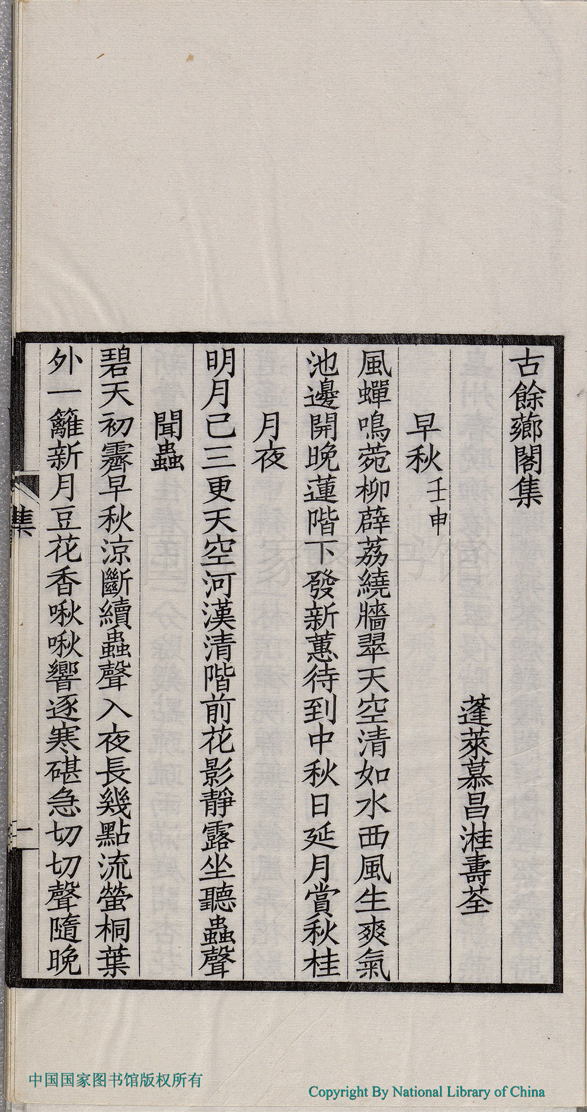 古餘薌閣集
蓬萊慕昌溎壽荃
早秋壬申
風蟬鳴菀柳薜荔繞牆翠天空清如水西風生爽氣
池邊開晚蓮階下發新蕙待到中秋日延月賞秋桂
月夜
明月已三更天空河漢清階前花影靜露坐聽蟲聲
聞蟲
碧天初霽早秋涼斷續蟲聲入夜長幾點流螢桐葉
外一籬新月豆花香啾啾響逐寒碪急切切聲隨晚
集
一
中国国家图书馆版权所有
Copyright By National Library of China